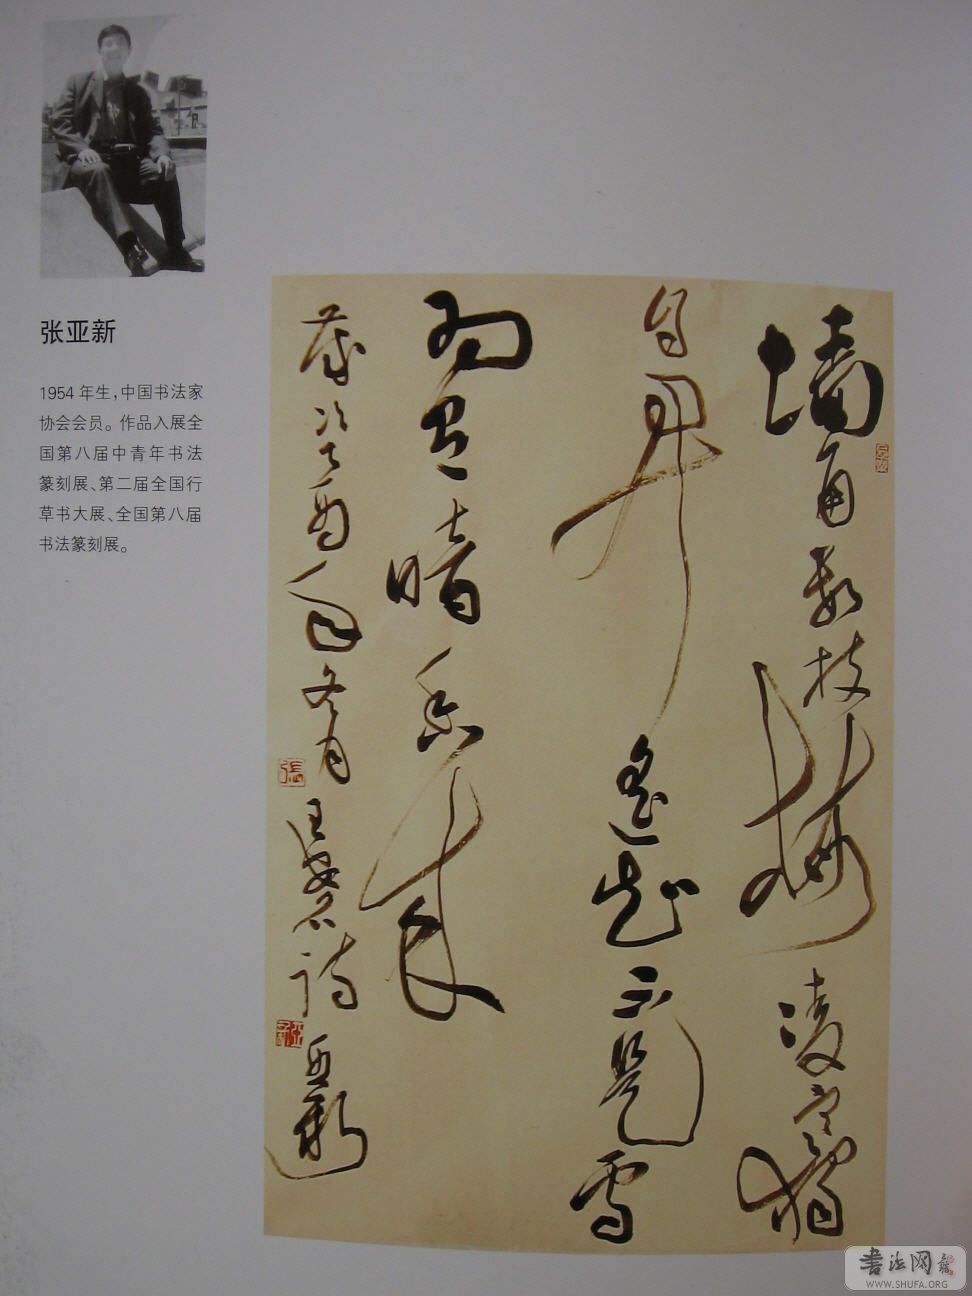 张亚新
1954年生，中国书法家
协会会员。作品入展全
国第八届中青年书法
篆刻展、第二届全国行
草书大展、全国第八届
书法篆刻展。
墙角数枝梅凌寒独
自开遥知不是雪
为有暗香来
岁次乙酉年冬月王安石诗亚新
張
书法网
WWW.SHUFA.ORG